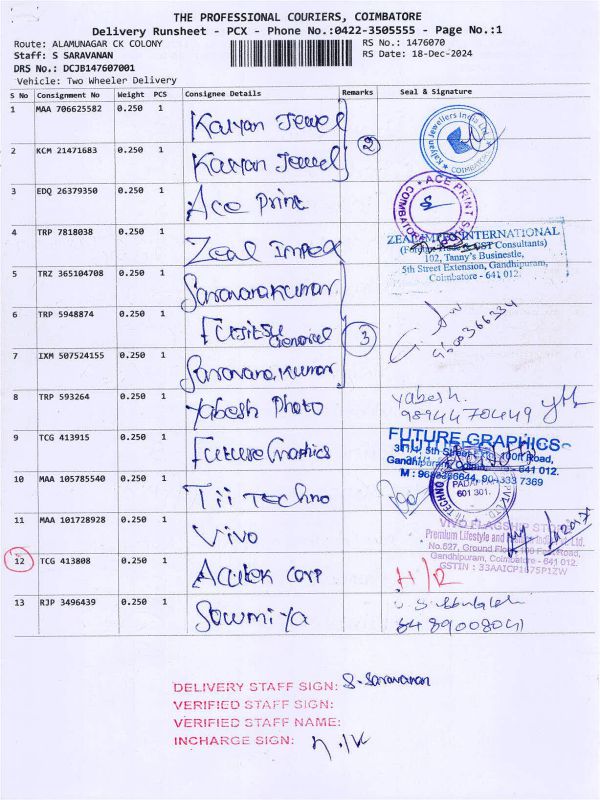 THE PROFESSIONAL COURIERS, COIMBATORE
Delivery Runsheet - PCX - Phone No.:0422-3505555 - Page No.:1
Route: ALAMUNAGAR CK COLONY
RS No.: 1476070
Staff: S SARAVANAN
RS Date: 18-Dec-2024
DRS No.: DCJB147607001
Vehicle: Two Wheeler Delivery
S No Consignment No Weight PCS Consignee Details Remarks Seal & Signature
1 MAA 706625582 0.250 1 Kalyan Jewel
Kalyan Jewellers India Ltd. COIMBATORE
2 KCM 21471683 0.250 1 Kalyan Jewel
3 EDQ 26379350 0.250 1 Ace Print
ACE PRINT COIMBATORE
4 TRP 7818038 0.250 1 Zeal Impex
INTERNATIONAL
GST Consultants)
102, Tanny's Businestle,
5th Street Extension, Gandhipuram,
Coimbatore - 641 012.
5 TRZ 365104708 0.250 1 Saravanakumar
6 TRP 5948874 0.250 1 Fujitsu General 3
7 IXM 507524155 0.250 1 Saravanakumar
8 TRP 593264 0.250 1 Yabesh Photo
Yabesh.
9894470449
9 TCG 413915 0.250 1 Future Graphics
FUTURE GRAPHICS
Gandhipuram, 641 012.
10 MAA 105785540 0.250 1 Tii Techno
601 301.
11 MAA 101728928 0.250 1 Vivo
VIVO FLAGSHIP STORE
Premium Lifestyle and Ltd.
No.527, Ground Floor, 100 Feet Road,
Gandhipuram, Coimbatore - 641 012
12 TCG 413808 0.250 1 Acutek Corp H/R
13 RJP 3496439 0.250 1 Sowmiya
8489008041
DELIVERY STAFF SIGN: S. Saravanan
VERIFIED STAFF SIGN:
VERIFIED STAFF NAME:
INCHARGE SIGN: